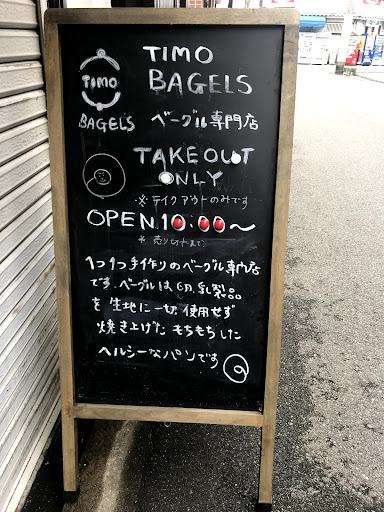 TIMO
BAGELS
TIMO
BAGELS ベーグル専門店
TAKEOUT
ONLY
※ テイクアウトのみです
OPEN 10:00〜
※ 売り切れまで
1つ1つ手作りのベーグル専門店
です。ベーグルは卵、乳製品
を生地に一切使用せず
焼き上げた もちもちした
ヘルシーなパンです